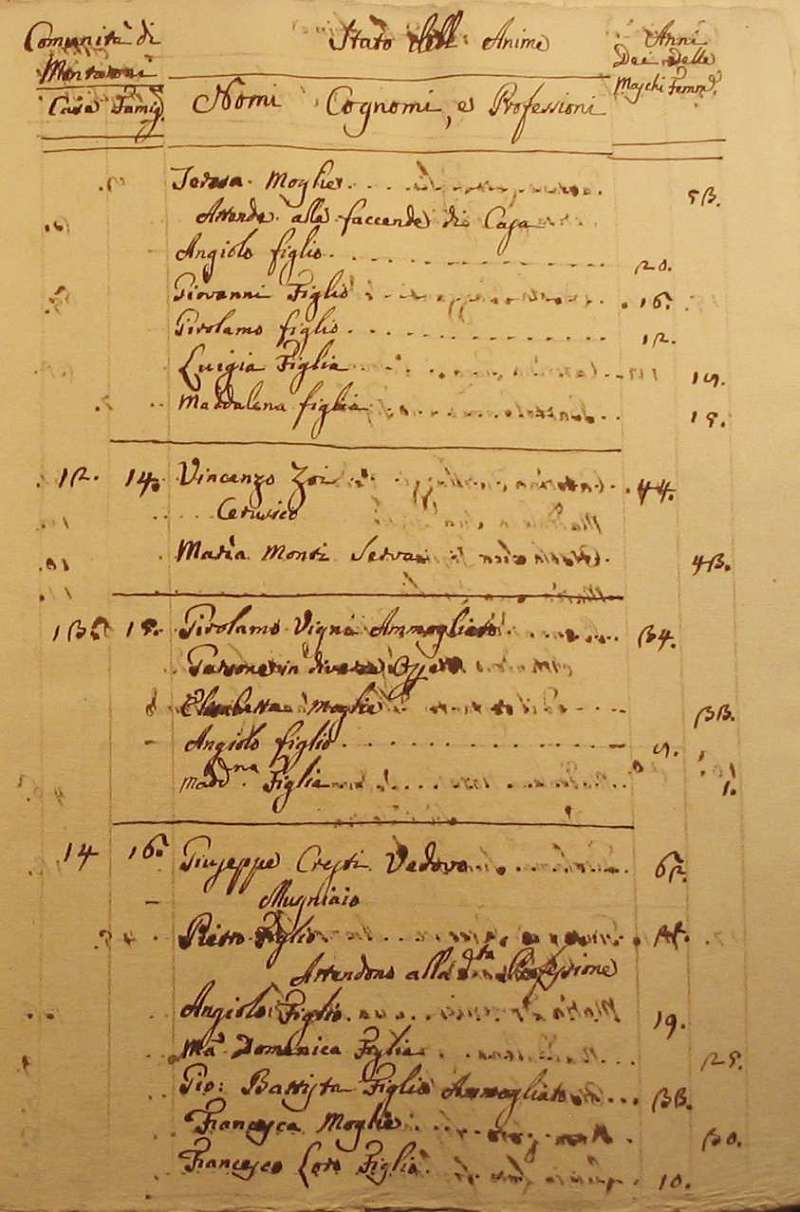 Comunità di
Montaroni
Stato dell: Anime
Anni
Dei delle
Maschi Femm:
Casa Famig.
Nomi Cognomi, e Professioni
Teresa Moglie 5B.
Attende alle faccende di Casa
Angiolo figlio 20.
Giovanni Figlio 16.
Girolamo figlio 12.
Luigia Figlia 19.
Maddalena figlia 15.
12. 14. Vincenzo Zoi 44.
Cerusico
Maria Monti Serva 4B.
1B 15. Girolamo Vigni Ammogliato B4.
Garzone in diverse
Elisabetta Moglie BB.
Angiolo figlio 9.
Madd.na Figlia 1.
14 16. Giuseppe Cresti Vedovo 62.
Mugniaio
Pietro Figlio
Attendono alla d.ta Professione
Angiolo Figlio 19.
Ma: Domenica Figlia 25.
Gio: Battista Figlio Ammogliato BB.
Francesca Moglie B0.
Francesco Loro Figlio 10.